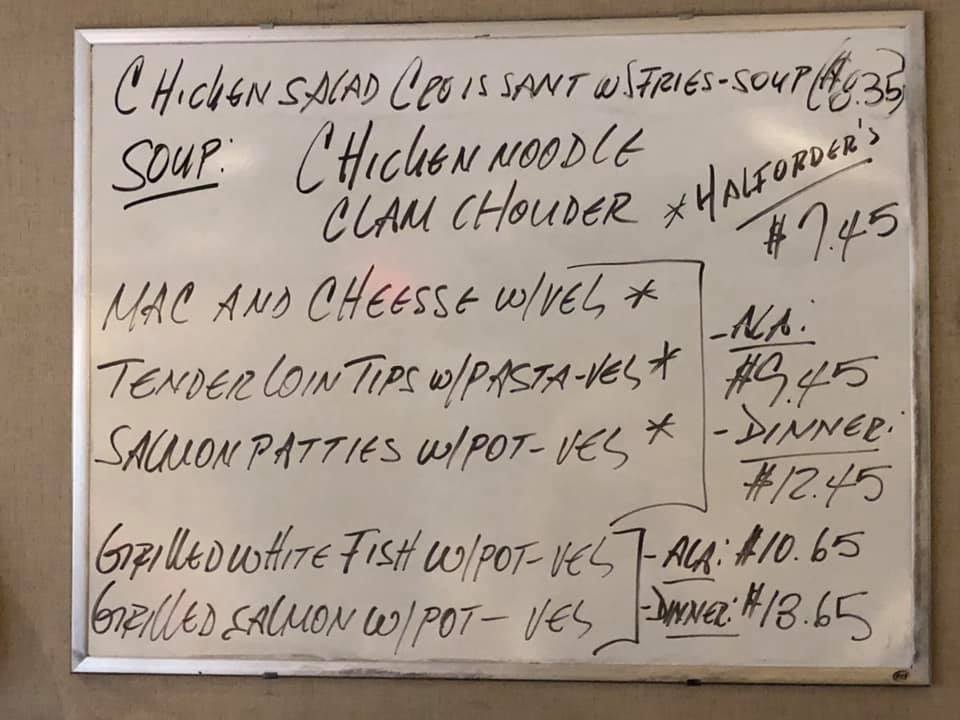 CHICKEN SALAD CROISSANT W/FRIES-SOUP ($8.35)
SOUP: CHICKEN NOODLE
CLAM CHOUDER *HALF ORDER'S
$7.45
MAC AND CHEESSE W/VEG *
TENDERLOIN TIPS W/PASTA-VEG *
SALMON PATTIES W/POT-VEG *
-ALA:
$9.45
-DINNER:
$12.45
GRILLED WHITE FISH W/POT-VEG
GRILLED SALMON W/POT-VEG
-ALA: $10.65
-DINNER: $13.65